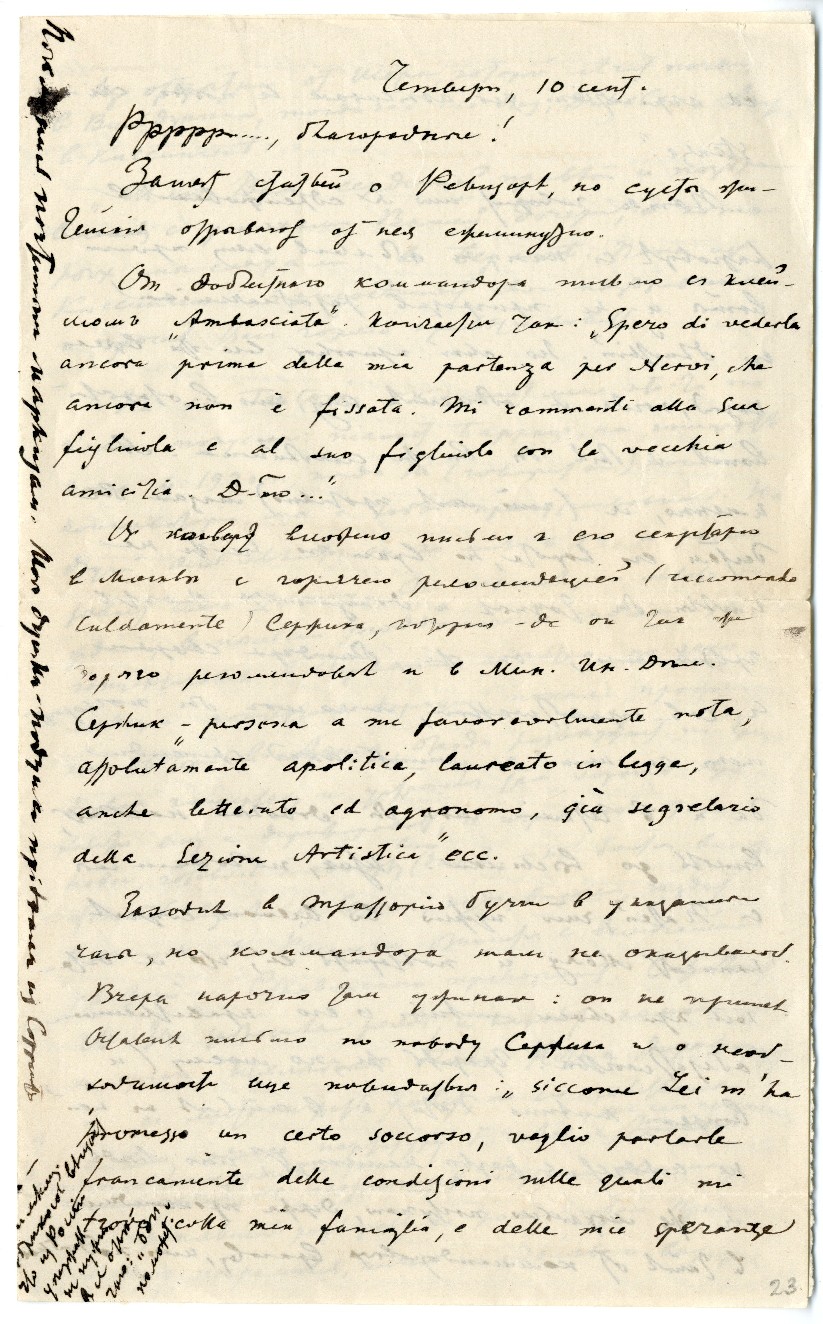 Четверг, 10 сент.
Рррррр....., благородные!
Занят статьей о Ревизоре, но суета при-
ходится отрываться от нея ежеминутно.
От доблестнаго коммандора письмо с клей-
момъ „Ambasciata". Кончается так: „Spero di vederla
ancora prima della mia partenza per Nervi, che
ancora non è fissata. Mi rammenti alla Sua
figliuola e al suo figliuolo con la vecchia
amicizia. D-mo..."
В конверт вложено письмо к его секретарю
в Москвы с горячею рекомендацией (raccomando
caldamente) Сержика, котораго-де он так же
горячо рекомендовал и в Мин. Ин. Дел.
Сержик – „persona a me favorevolmente nota,
assolutamente apolitica, laureato in legge,
anche letterato ed agronomo, già segretario
della Sezione Artistica" ecc.
Заходил в тратторию Буччи в указанные
часы, но коммандора там не оказывалось.
Вчера нарочно там ужинал: он не пришел.
Оставил письмо по поводу Сержика и о необ-
ходимости еще повидаться: „siccome Lei m'ha
promesso un certo soccorso, voglio parlarle
francamente delle condizioni nelle quali mi
trovo colla mia famiglia, e delle mie speranze
23